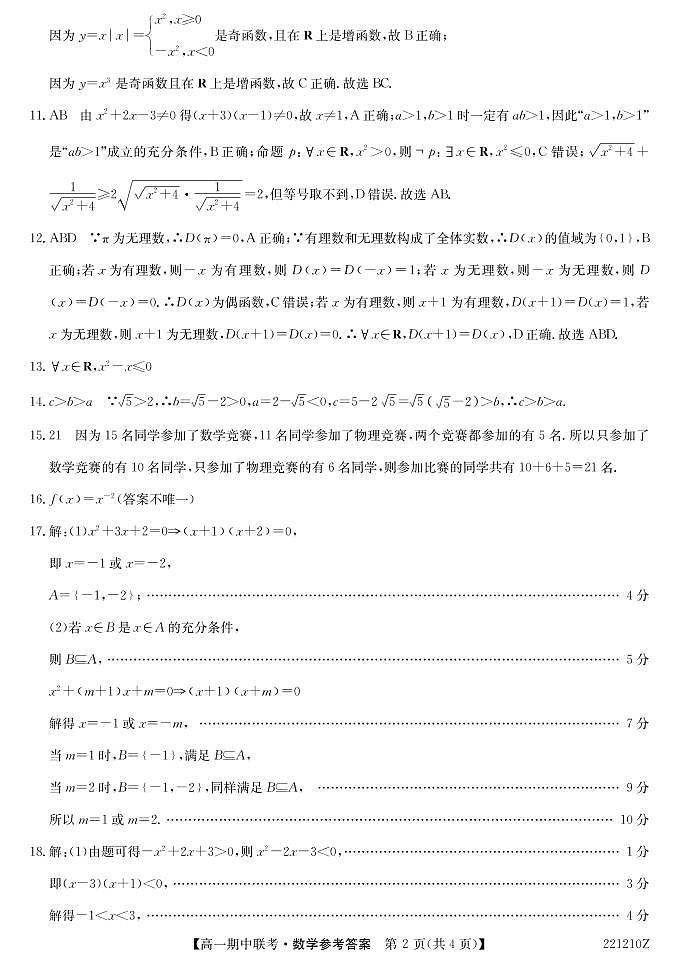 因为 y=x|x|={x²,x≥0
-x²,x<0 是奇函数,且在 R 上是增函数,故 B 正确;
因为 y=x³ 是奇函数且在 R 上是增函数,故 C 正确.故选 BC.
11.AB 由 x²+2x-3≠0 得(x+3)(x-1)≠0,故 x≠1,A 正确;a>1,b>1 时一定有 ab>1,因此“a>1,b>1”
是“ab>1”成立的充分条件,B 正确;命题 p:∀x∈R,x²>0,则¬p:∃x∈R,x²≤0,C 错误;√(x²+4)+
1/√(x²+4)≥2√(√(x²+4)·1/√(x²+4))=2,但等号取不到,D 错误.故选 AB.
12.ABD ∵π 为无理数,∴D(π)=0,A 正确;∵有理数和无理数构成了全体实数,∴D(x)的值域为{0,1},B
正确;若 x 为有理数,则-x 为有理数,则 D(x)=D(-x)=1;若 x 为无理数,则-x 为无理数,则 D
(x)=D(-x)=0.∴D(x)为偶函数,C 错误;若 x 为有理数,则 x+1 为有理数,D(x+1)=D(x)=1,若
x 为无理数,则 x+1 为无理数,D(x+1)=D(x)=0.∴∀x∈R,D(x+1)=D(x),D 正确.故选 ABD.
13.∀x∈R,x²-x≤0
14.c>b>a ∵√5>2,∴b=√5-2>0,a=2-√5<0,c=5-2√5=√5(√5-2)>b,∴c>b>a.
15.21 因为 15 名同学参加了数学竞赛,11 名同学参加了物理竞赛,两个竞赛都参加的有 5 名.所以只参加了
数学竞赛的有 10 名同学,只参加了物理竞赛的有 6 名同学,则参加比赛的同学共有 10+6+5=21 名.
16.f(x)=x⁻²(答案不唯一)
17.解:(1)x²+3x+2=0⇒(x+1)(x+2)=0,
即 x=-1 或 x=-2,
A={-1,-2};…………………… 4 分
(2)若 x∈B 是 x∈A 的充分条件,
则 B⊆A,…………………… 5 分
x²+(m+1)x+m=0⇒(x+1)(x+m)=0
解得 x=-1 或 x=-m,…………………… 7 分
当 m=1 时,B={-1},满足 B⊆A,
当 m=2 时,B={-1,-2},同样满足 B⊆A,…………………… 9 分
所以 m=1 或 m=2.…………………… 10 分
18.解:(1)由题可得-x²+2x+3>0,则 x²-2x-3<0,…………………… 1 分
即(x-3)(x+1)<0,…………………… 3 分
解得-1<x<3,…………………… 4 分
【高一期中联考·数学参考答案 第 2 页(共 4 页)】 221210Z